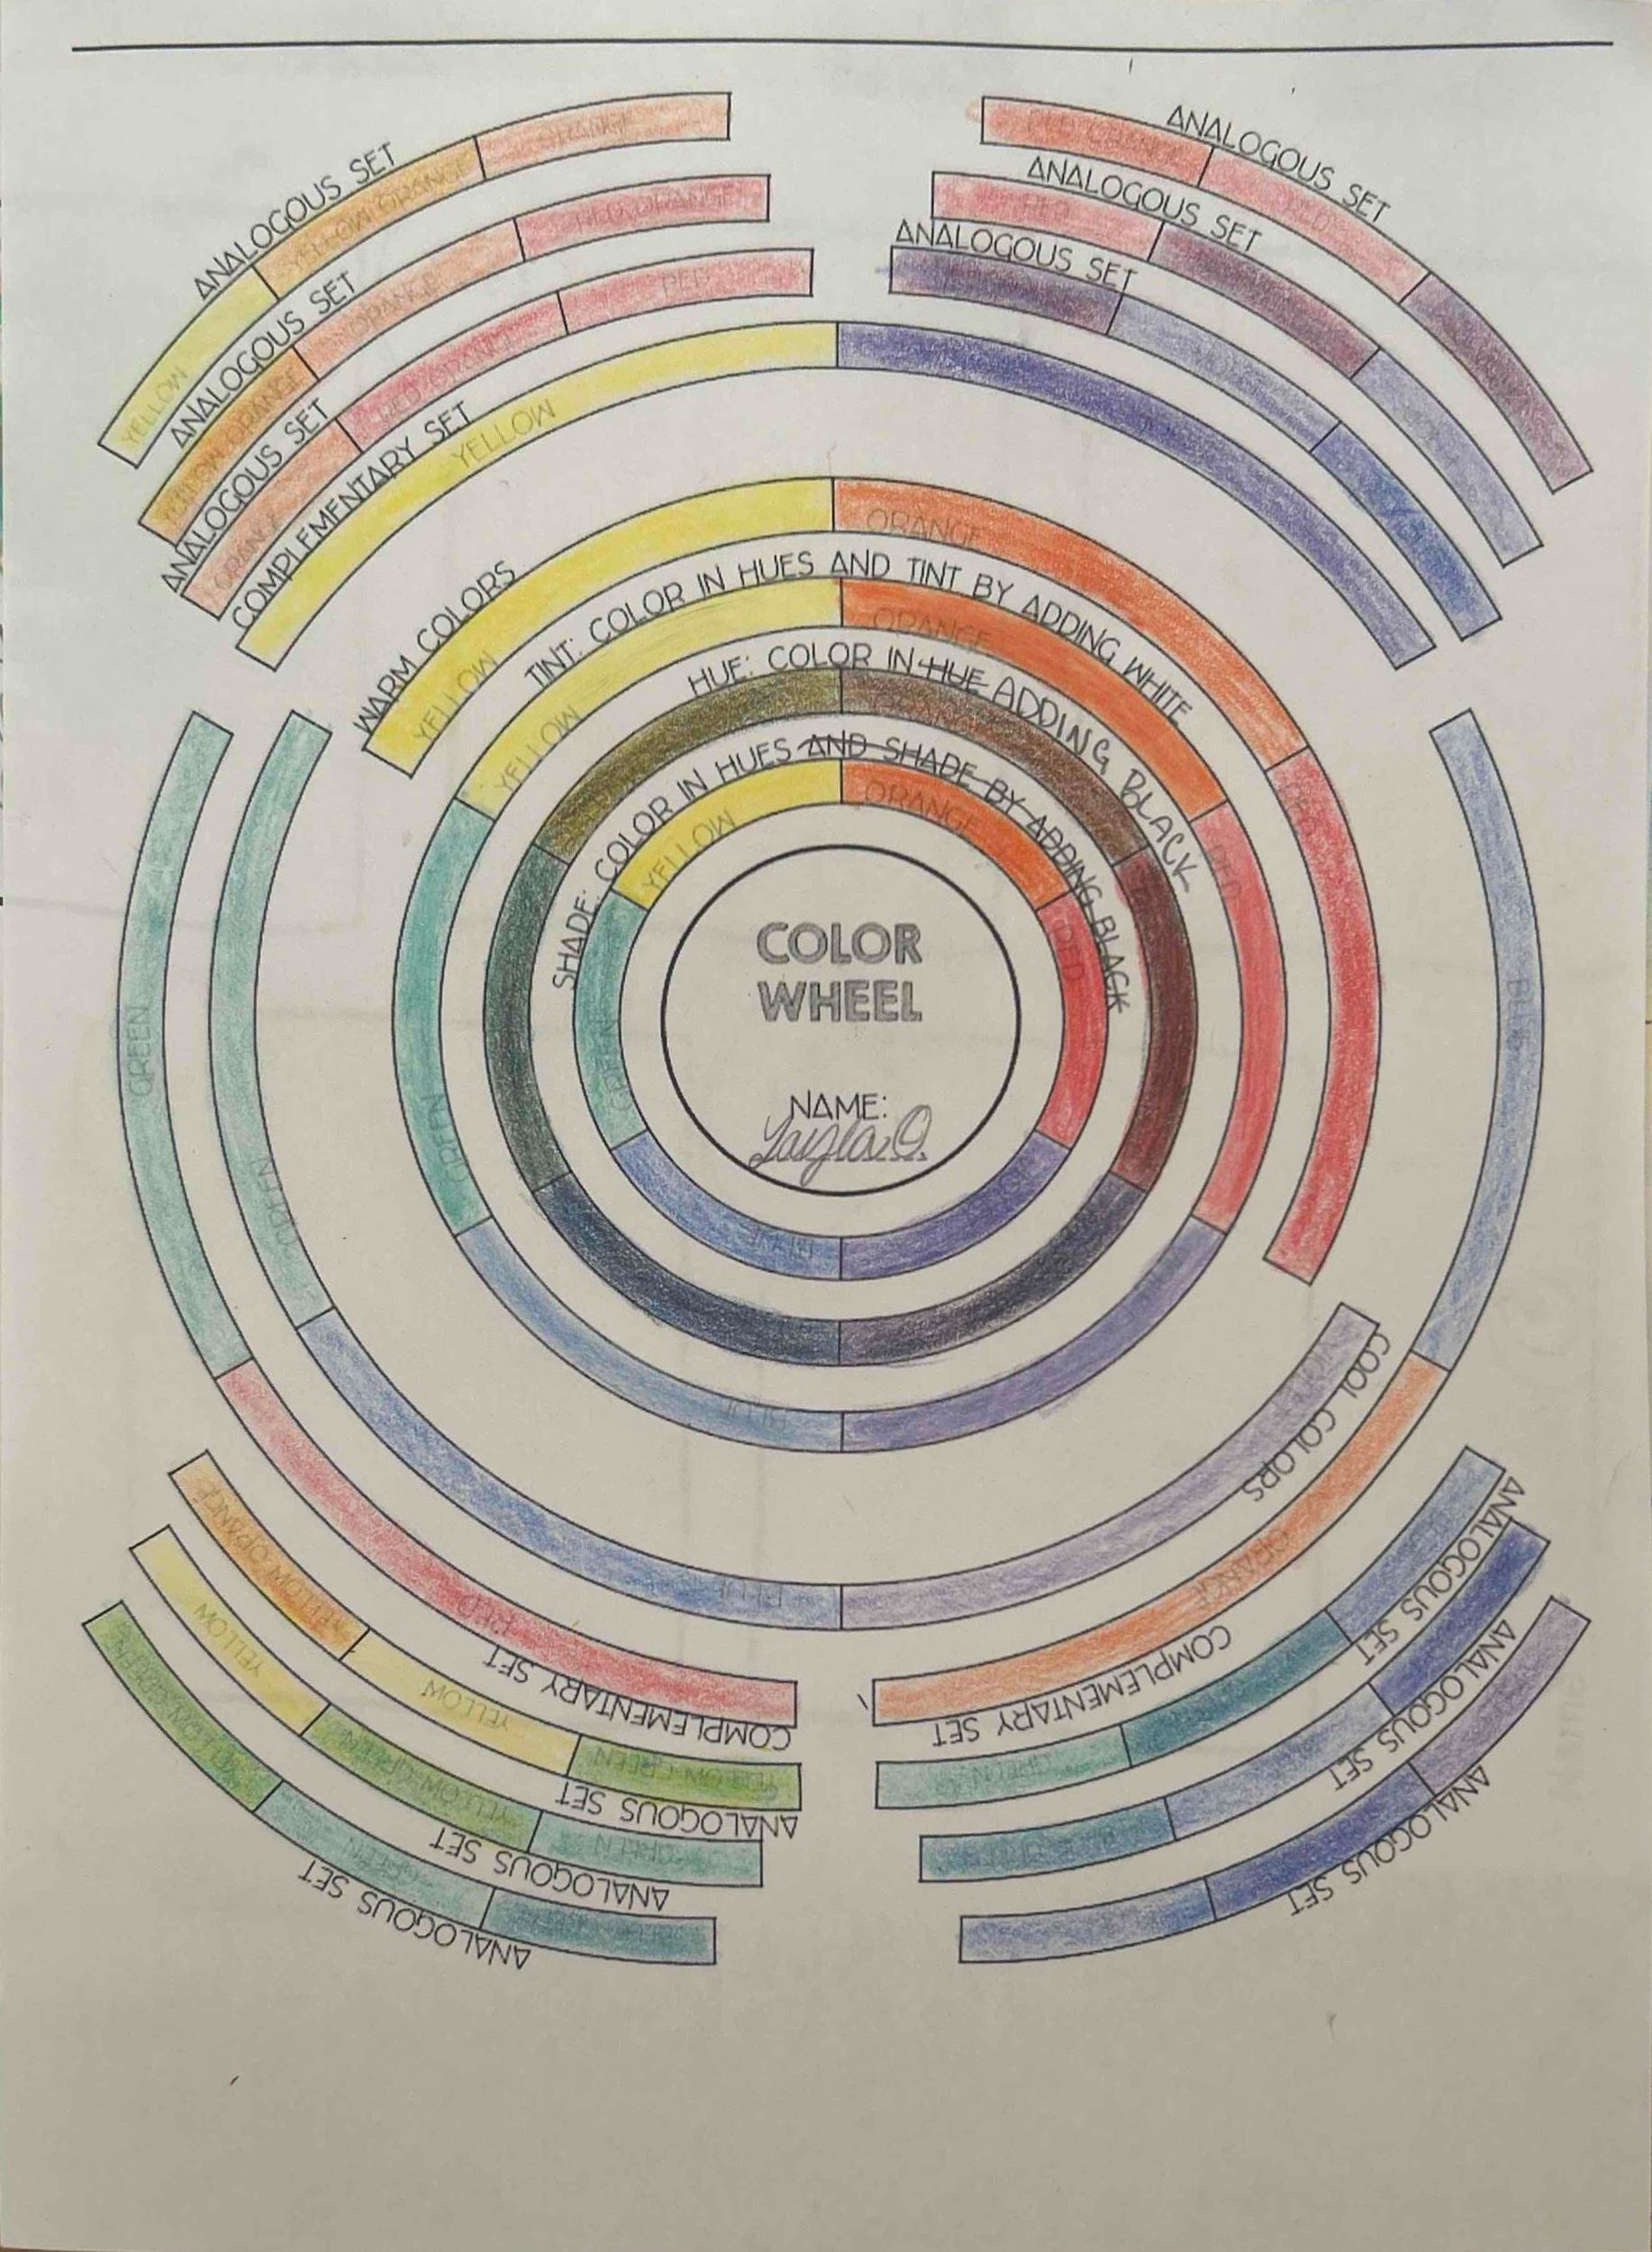 ANALOGOUS SET
YELLOW
YELLOW ORANGE
ORANGE
ANALOGOUS SET
YELLOW ORANGE
ORANGE
RED ORANGE
ANALOGOUS SET
ORANGE
RED ORANGE
RED
COMPLEMENTARY SET
YELLOW
ANALOGOUS SET
RED ORANGE
RED
ANALOGOUS SET
RED
ANALOGOUS SET
VIOLET
WARM COLORS
YELLOW
ORANGE
RED
TINT: COLOR IN HUES AND TINT BY ADDING WHITE
YELLOW
ORANGE
RED
GREEN
BLUE
HUE: COLOR IN HUE ADDING BLACK
SHADE: COLOR IN HUES AND SHADE BY ADDING BLACK
YELLOW
ORANGE
RED
GREEN
BLUE
COLOR
WHEEL
NAME:
Layla O.
GREEN
RED
COMPLEMENTARY SET
GREEN
BLUE
COOL COLORS
BLUE
ORANGE
COMPLEMENTARY SET
YELLOW ORANGE
YELLOW
YELLOW GREEN
ANALOGOUS SET
YELLOW
YELLOW GREEN
GREEN
ANALOGOUS SET
YELLOW GREEN
GREEN
ANALOGOUS SET
GREEN
ANALOGOUS SET
BLUE GREEN
ANALOGOUS SET
ANALOGOUS SET